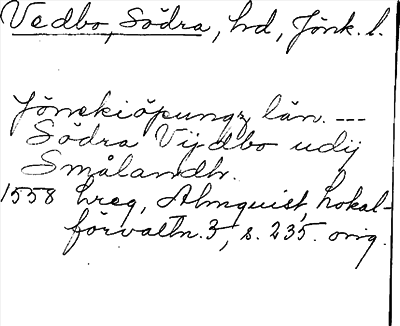 Vedbo, Södra, hd, Jönk. l.
Jönekiöpungz län. ---
Södra Vijdbo udij
Smålandh.
1558 hreg, Almquist, Lokal-
förvaltn. 3, s. 235. orig.